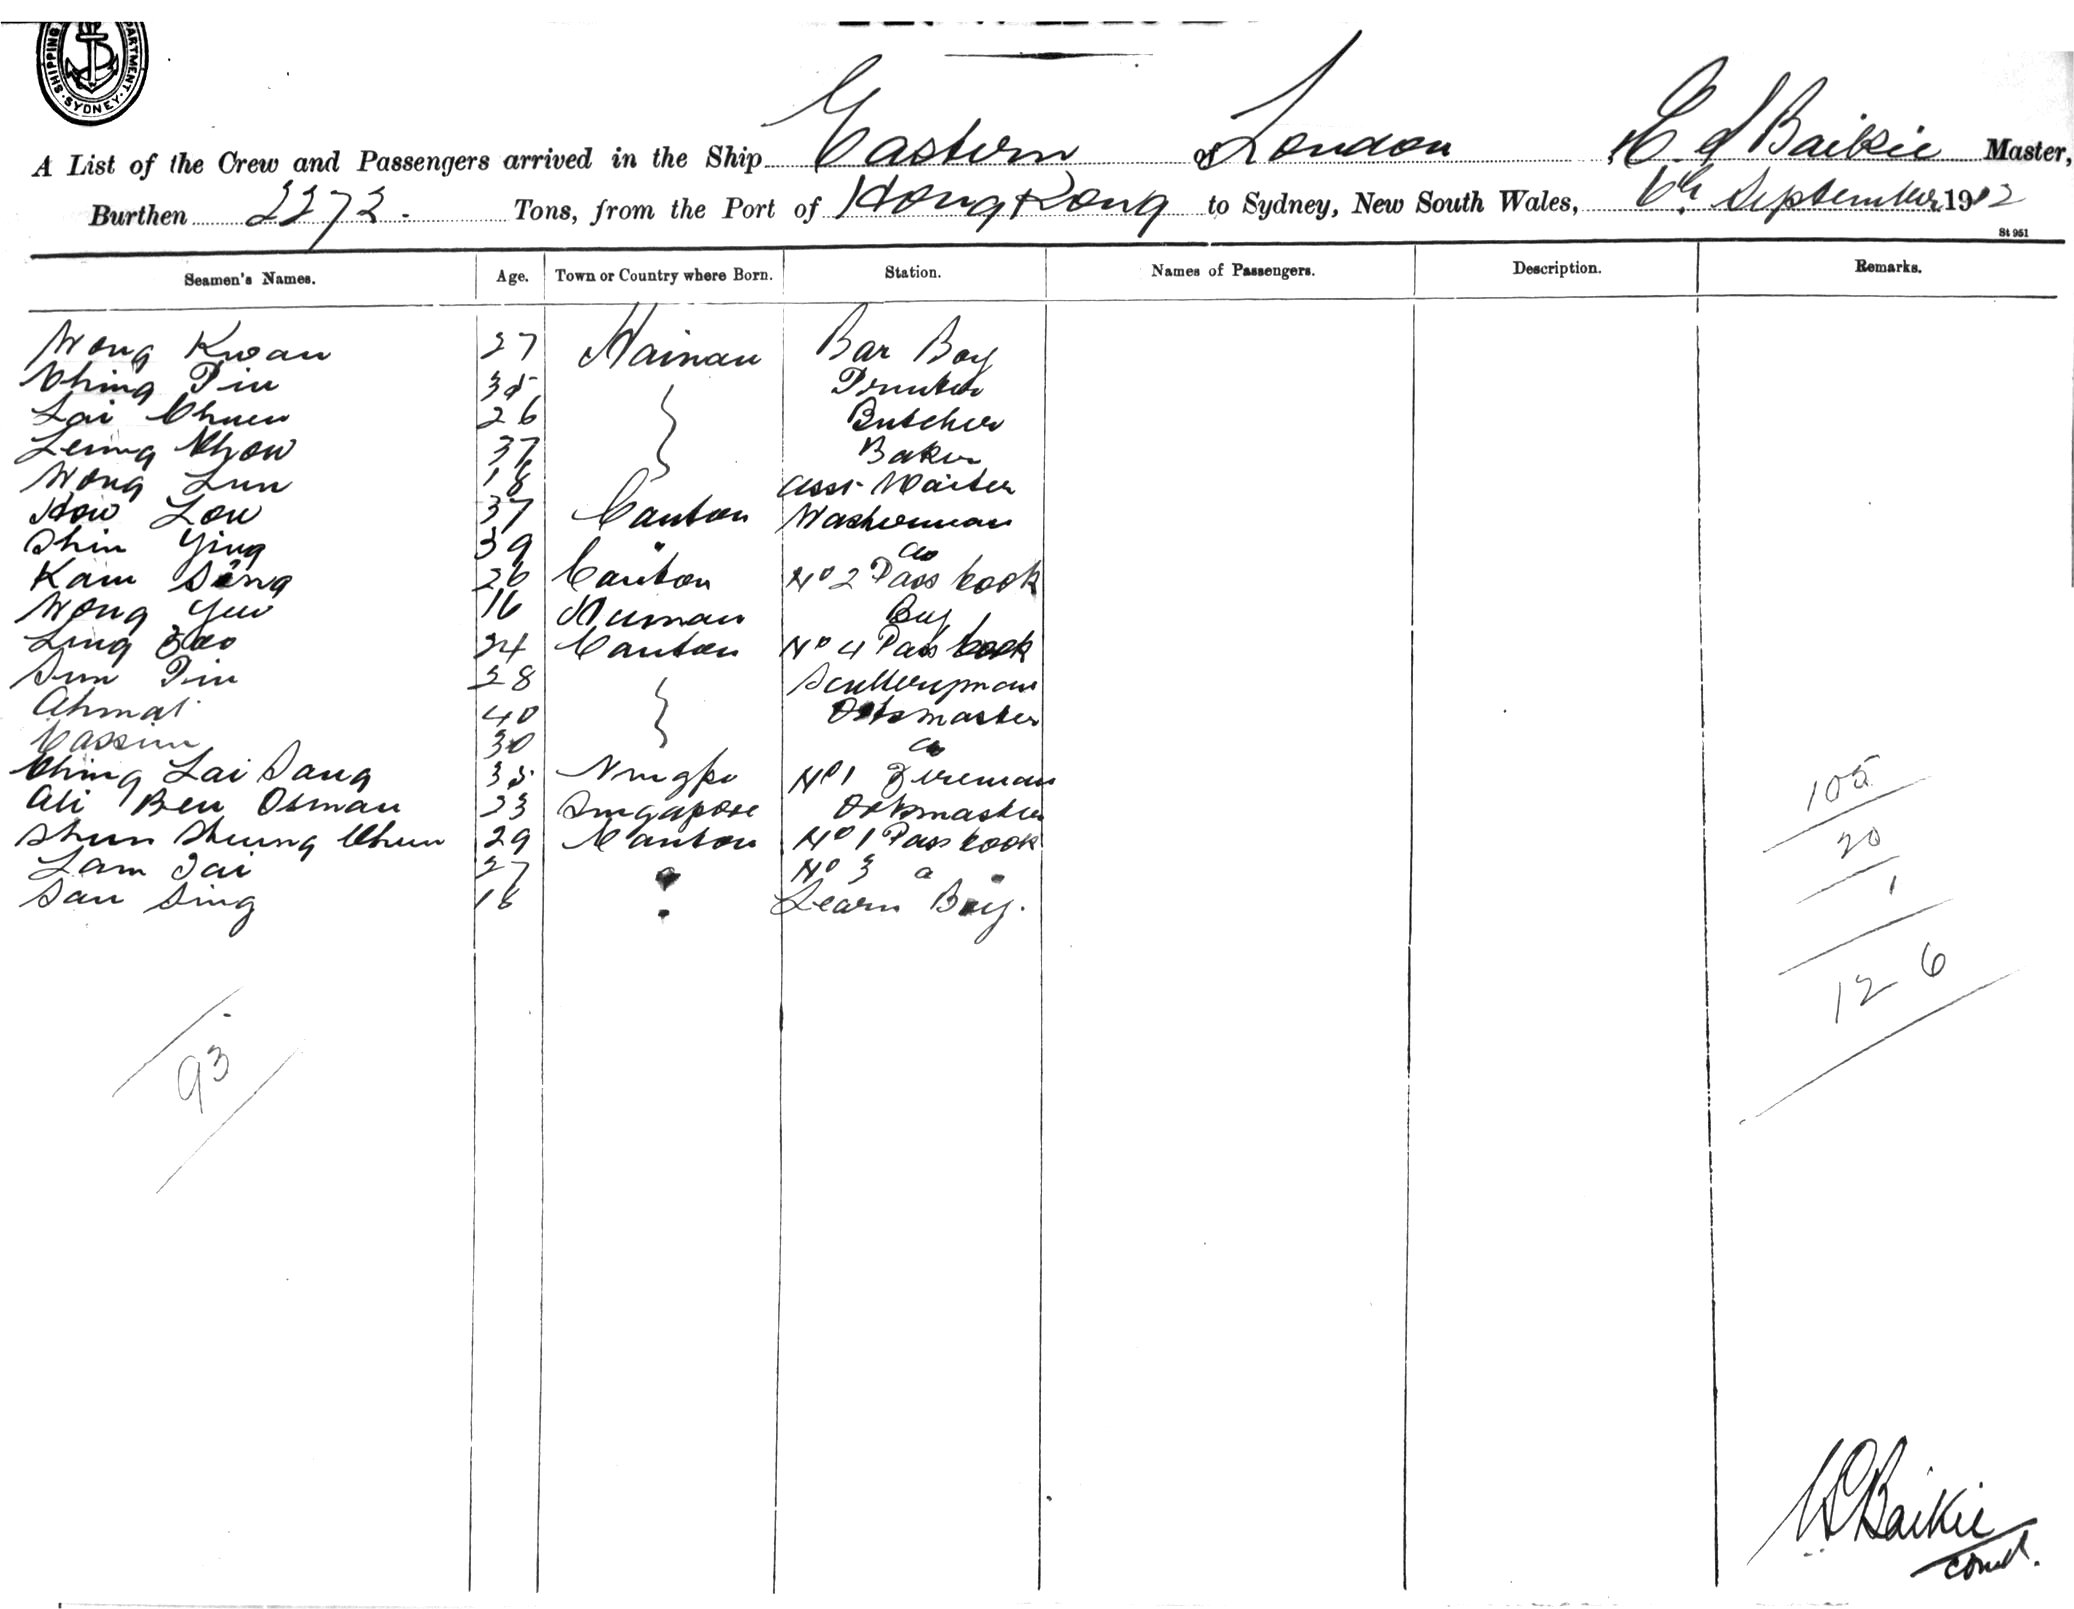 SHIPPING DEPARTMENT SYDNEY
A List of the Crew and Passengers arrived in the Ship Eastern of London Baikie Master,
Burthen 2272. Tons, from the Port of HongKong to Sydney, New South Wales, 6th September 1912
St 951
Seamen's Names. Age. Town or Country where Born. Station. Names of Passengers. Description. Remarks.
Wong Kwan 27 Hainan Bar Boy
Ching Pin 35
Lai Chuen 26 Butcher
Leung Chow 37 Baker
Wong Lun 18 Asst Waiter
How Low 37 Canton Washerman
Shin Ying 39 " do
Kam Sing 26 Canton No 2 Pass Cook
Wong Yuu 16 Hainan Boy
Ling 24 Canton No 4 Pass Cook
Sun Pin 28 Sculleryman
Ahmat 40 Qrtsmaster
Cassim 30 do
Ching Lai Sang 35 Ningpo No 1 Fireman
Ali Ben Osman 23 Singapore Qrtsmaster
Shun Sheung Chun 29 Canton No 1 Pass Cook
Lam Tai 27 " No 3 "
San Sing 16 " Learn Boy.
105
20
1
126
93
Baikie